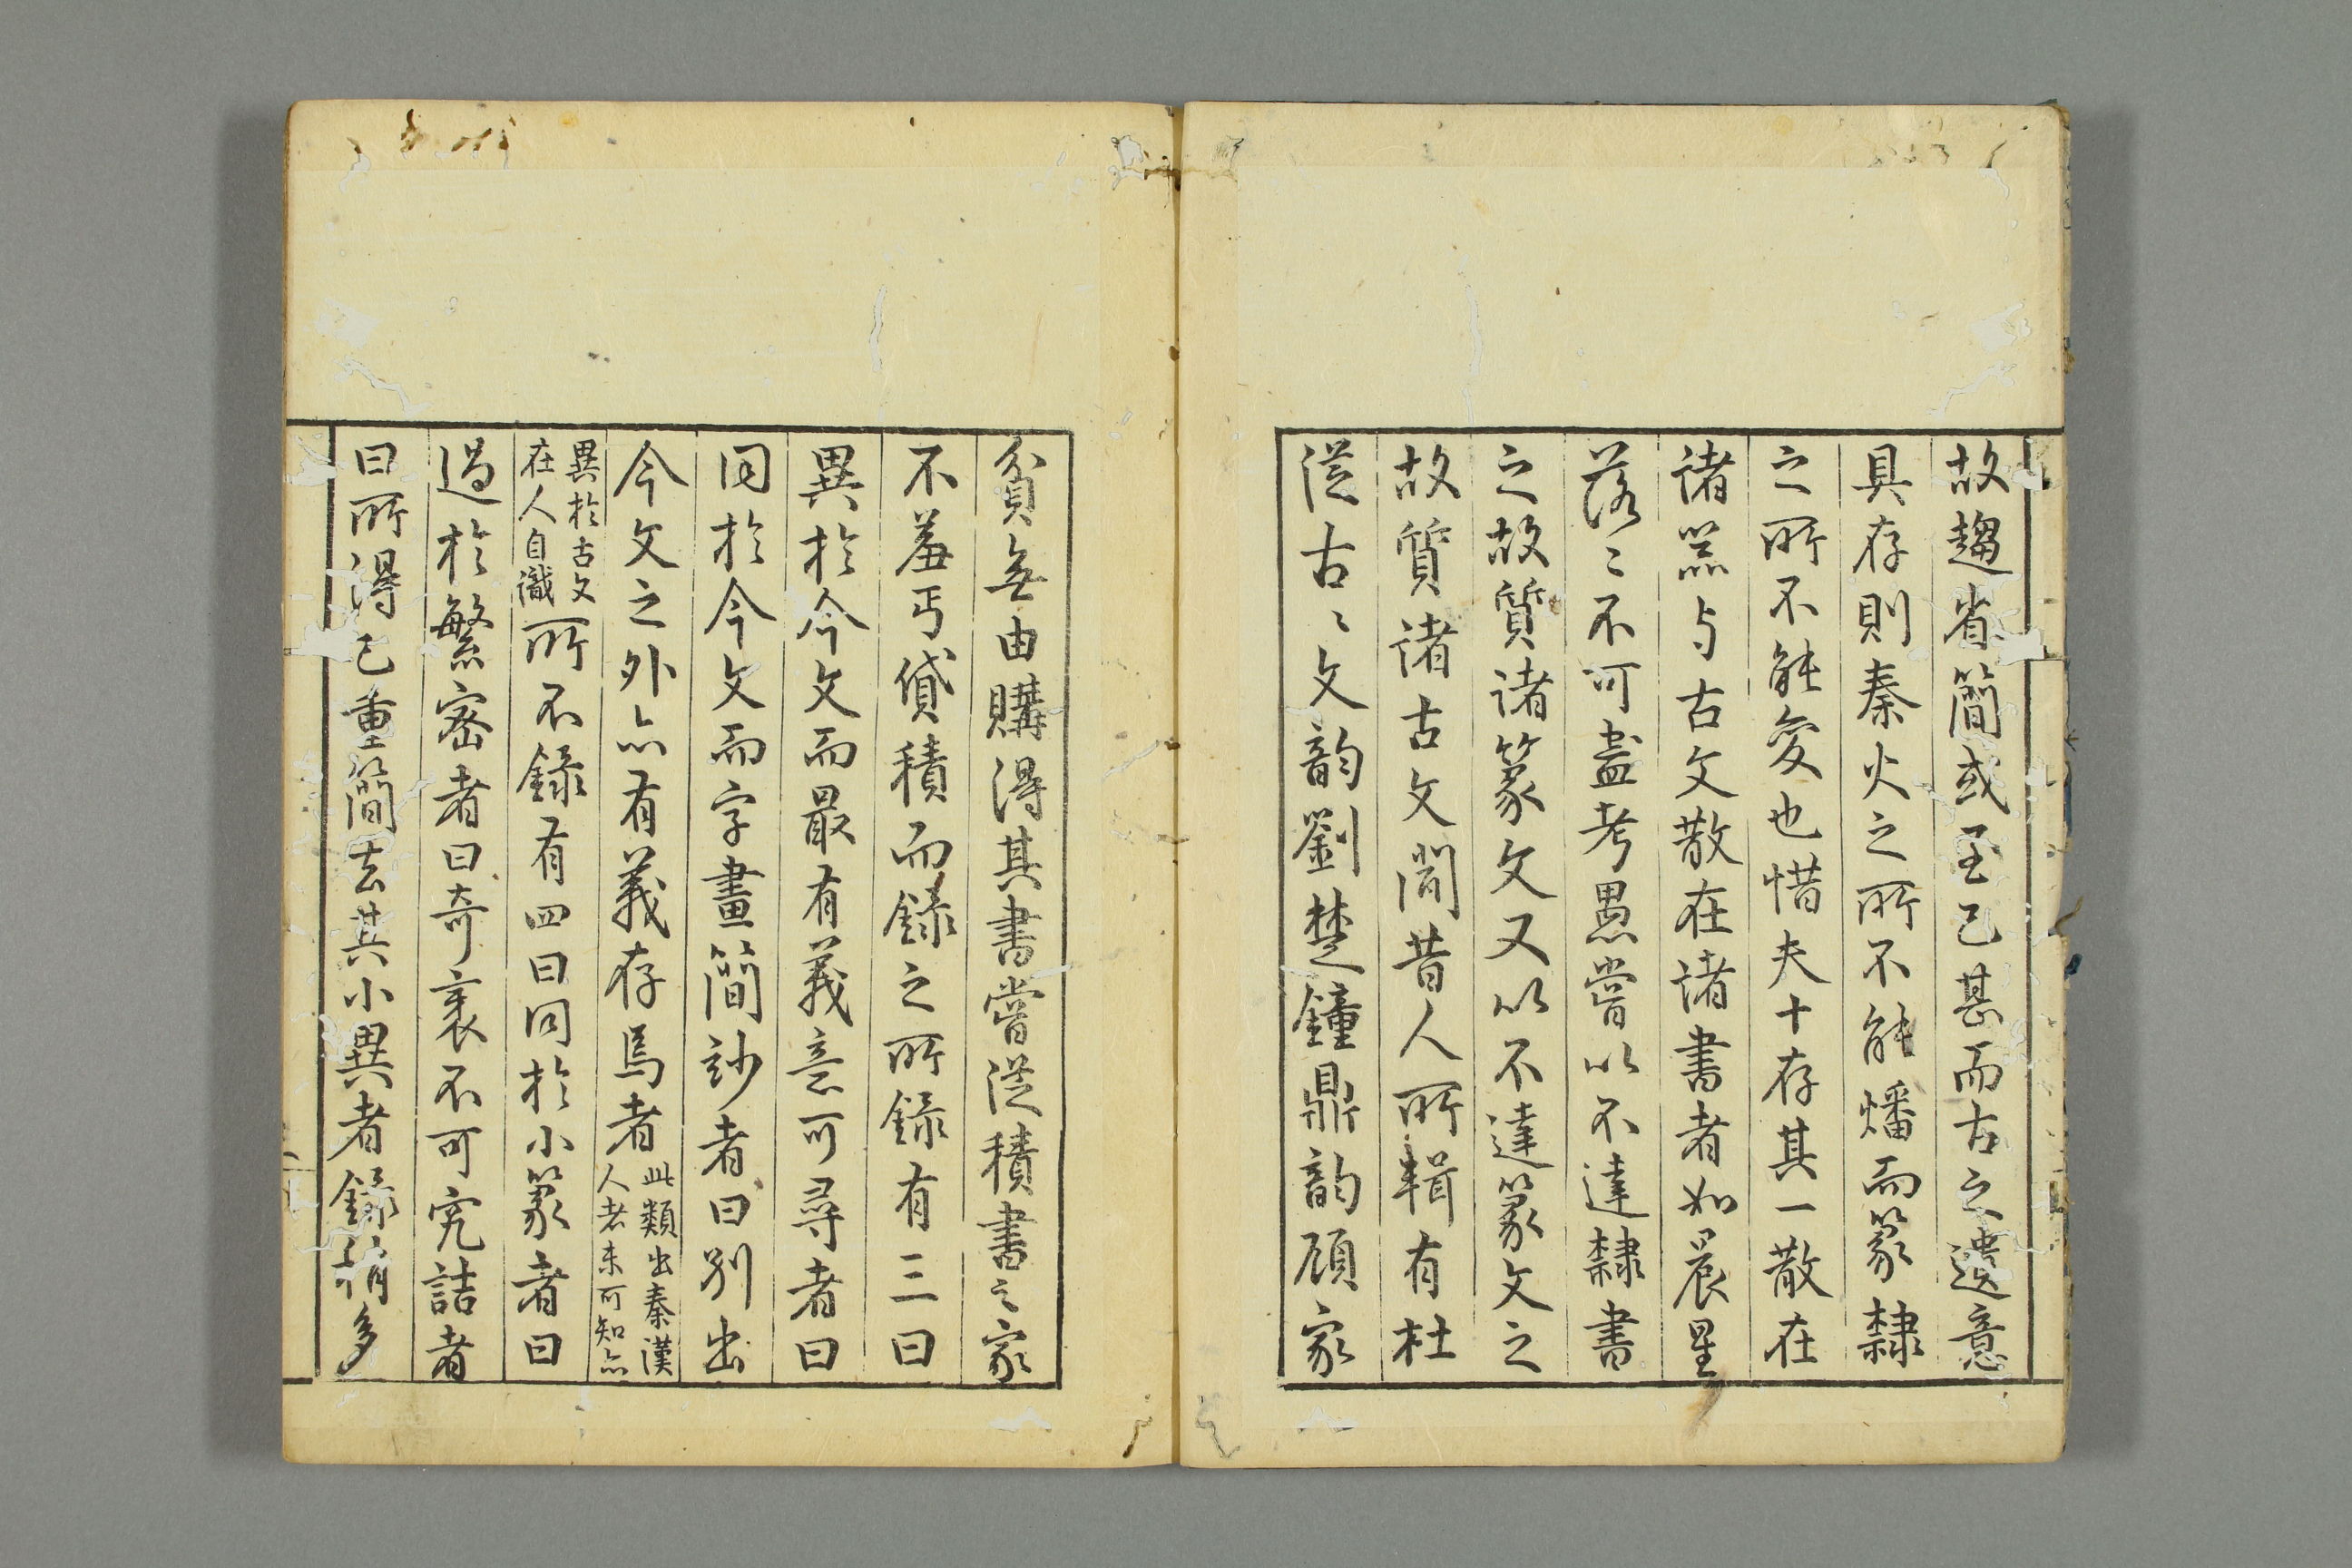 故趨省簡或至已甚而古之遺意
具存則秦火之所不能燔而篆隸
之所不能变也惜夫十存其一散在
諸器与古文散在諸書者如晨星
落〻不可盡考愚嘗以不達隸書
之故質諸篆文又以不達篆文之
故質諸古文間昔人所輯有杜
從古〻文韵劉楚鐘鼎韵顧家
貧無由購得其書嘗從積書之家
不羞丐貸積而録之所録有三曰
異於今文而最有義意可尋者曰
同於今文而字畫簡玅者曰別出
今文之外亦有義存焉者此類出秦漢
人者未可知亦
異於古文
在人自識所不録有四曰同於小篆者曰
過於繁密者曰奇衺不可究詰者
曰所得已重簡去其小異者録稍多